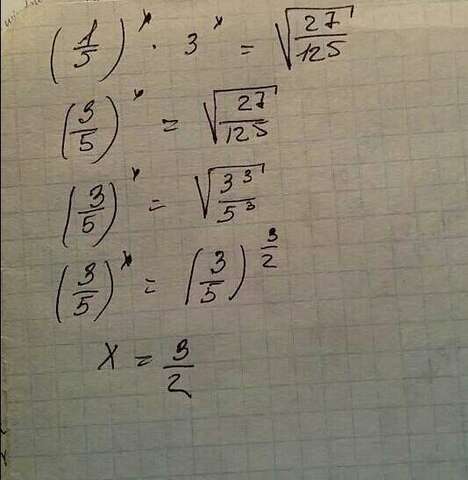 (1/5)^x · 3^x = √(27/125)
(3/5)^x = √(27/125)
(3/5)^x = √(3^3/5^3)
(3/5)^x = (3/5)^(3/2)
x = 3/2